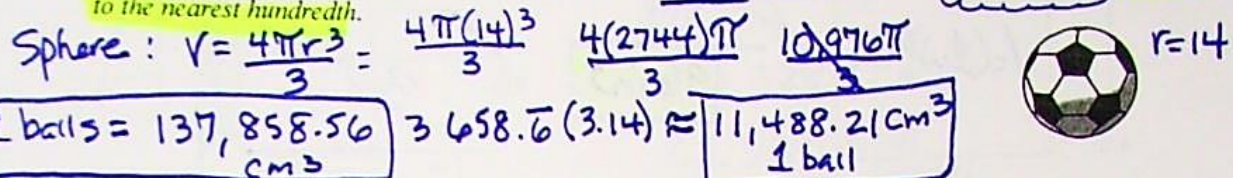 to the nearest hundredth.
Sphere: V = 4πr³/3 = 4π(14)³/3 4(2744)π/3 10,976π/3 r=14
balls = 137,858.56 cm³ 3658.6̅(3.14) ≈ 11,488.21 cm³ 1 ball